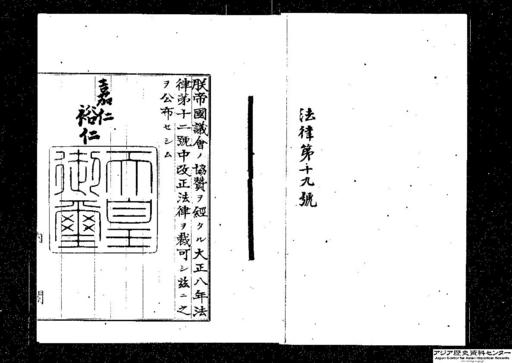 法律第十九號
朕帝國議會ノ協贊ヲ經タル大正八年法
律第十二號中改正法律ヲ裁可シ玆ニ之
ヲ公布セシム
嘉仁
裕仁
天皇
御璽
內閣
アジア歴史資料センター
Japan Center for Asian Historical Records